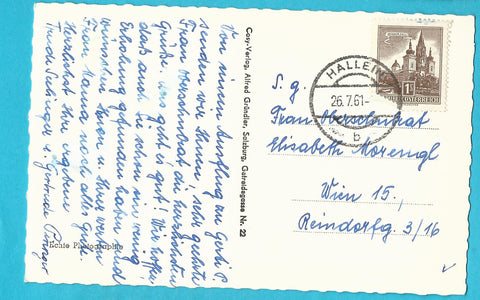 Von einem Ausflug zu Gerli P.
senden wir Ihnen, sehr geehrte
Frau Oberschulrat die herzlichsten
Grüße. Uns geht es gut. Wir hoffen
daß auch Sie schon ein wenig
Erholung gefunden haben und
wünschen Ihnen u. Ihrer werten
Frau Mama noch alles Gute.
Herzlichst Ihre ergebene
Trude u. Gertrude
Echte Photographie
Cosy-Verlag, Alfred Gründler, Salzburg, Getreidegasse Nr. 22
HALLEIN
26.7.61-
b
1 S
REPUBLIK ÖSTERREICH
S. g.
Frau Oberschulrat
Elisabeth Morengl
Wien 15.,
Reindorfg. 3/16